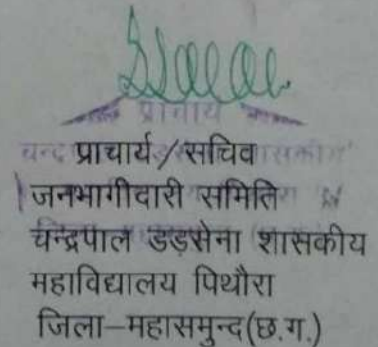 प्राचार्य
प्राचार्य/सचिव
जनभागीदारी समिति
चन्द्रपाल डड़सेना शासकीय
महाविद्यालय पिथौरा
जिला–महासमुन्द(छ.ग.)